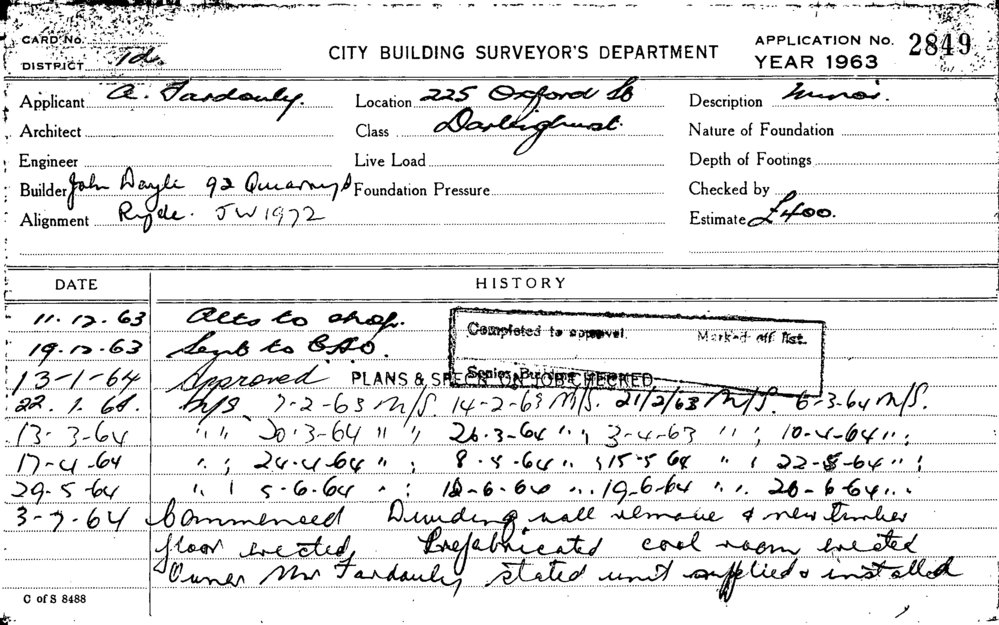 CARD No.
DISTRICT
CITY BUILDING SURVEYOR'S DEPARTMENT
APPLICATION No. 2849
YEAR 1963
Applicant A. Fardouly. Location 225 Oxford St Description Minor.
Architect Class Darlinghurst. Nature of Foundation
Engineer Live Load Depth of Footings
Builder John Doyle 92 Quarry Foundation Pressure Checked by
Alignment Ryde. JW1972 Estimate £400.
DATE HISTORY
11.12.63 Alts to shop.
Completed to approval. Marked off list.
19.12.63 Sent to
Senior Bu
13-1-64 Approved PLANS & SPECN ON JOB CHECKED
22.1.64. N/S. 7-2-63 N/S. 14-2-63 N/S. 21/2/63 N/S. 6-3-64 N/S.
13-3-64 " " 20.3-64 " " ; 26.3-64 " " ; 3-4-63 " " ; 10-4-64 " ;
17-4-64 " ; 24-4-64 " ; 8-5-64 " ; 15-5 64 " ; 22-5-64 " ;
29.5-64 " ; 5-6-64 " ; 12-6-64 " 19-6-64 " 26-6-64 "
3-7-64 Commenced Dividing wall remove & new timber
floor erected, Prefabricated cool room erected
Owner Mr Fardouly stated unit supplied & installed
C of S 8488